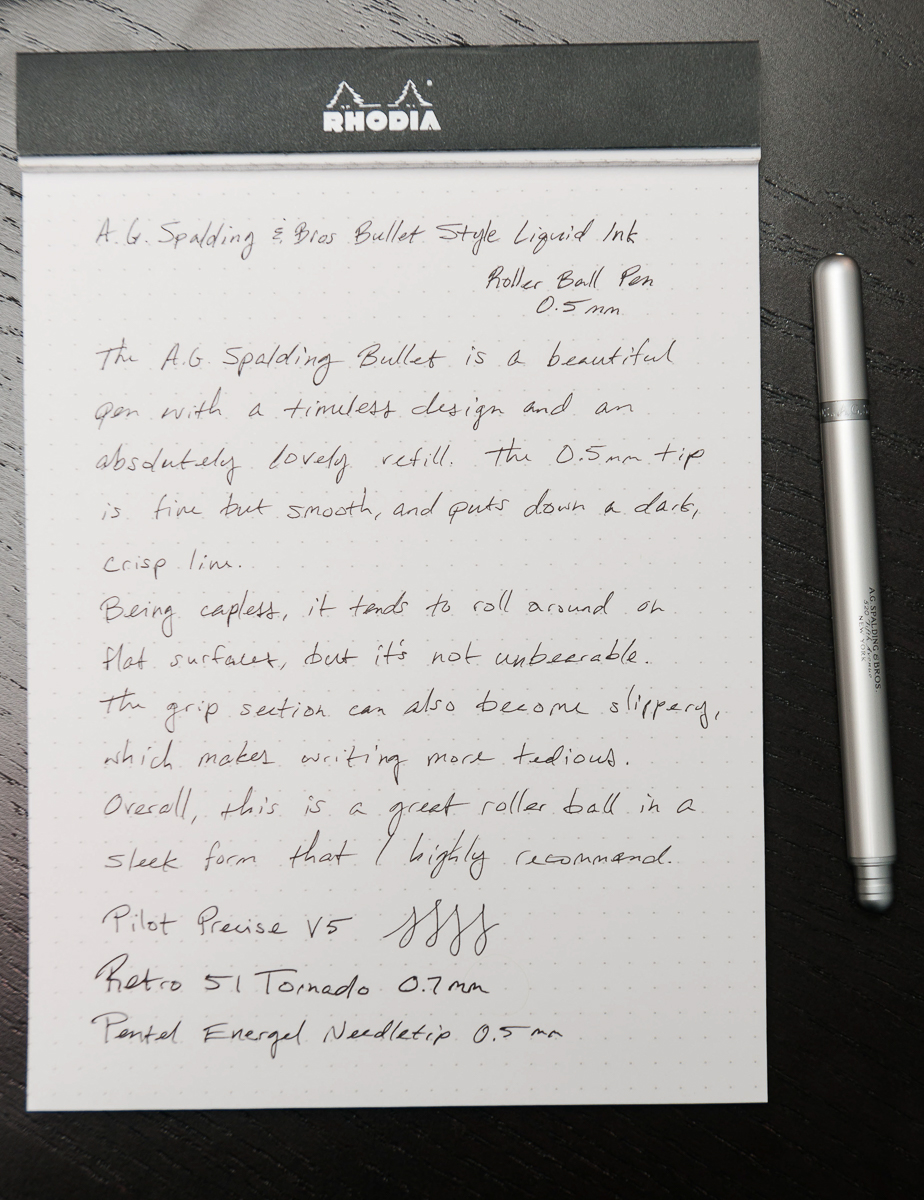 RHODIA
A.G. Spalding & Bros Bullet Style Liquid Ink
Roller Ball Pen
0.5 mm
The A.G. Spalding Bullet is a beautiful
pen with a timeless design and an
absolutely lovely refill. The 0.5mm tip
is fine but smooth, and puts down a dark,
crisp line.
Being capless, it tends to roll around on
flat surfaces, but it's not unbearable.
The grip section can also become slippery,
which makes writing more tedious.
Overall, this is a great roller ball in a
sleek form that I highly recommend.
Pilot Precise V5
Retro 51 Tornado 0.7mm
Pentel Energel Needletip 0.5 mm
A.G. SPALDING & BROS.
520 Fifth Avenue
NEW YORK